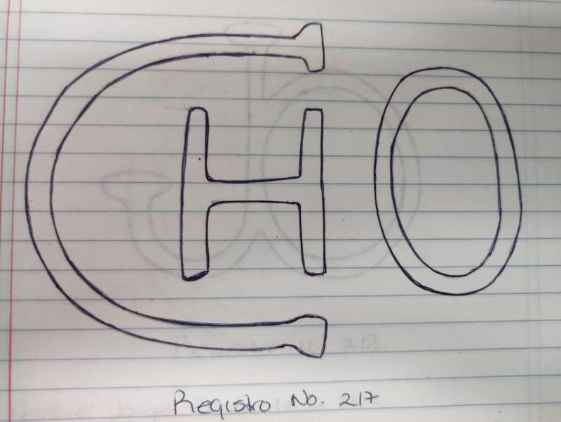 CHO
Registro No. 217